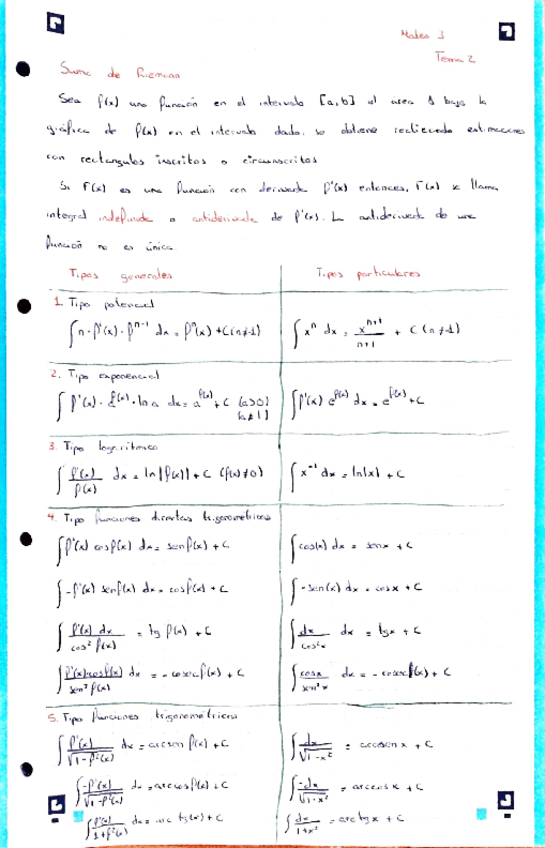 Mates 3
Tema 2
Suma de Riemann
Sea f(x) una función en el intervalo [a,b] el área A bajo la
gráfica de f(x) en el intervalo dado, se obtiene realizando estimaciones
con rectangulos inscritos o circunscritos
Si F(x) es una función con derivada f'(x) entonces, F(x) se llama
integral indefinida o antiderivada de f'(x). La antiderivada de una
función no es única.
Tipos generales
Tipos particulares
1. Tipo potencial
∫n·f'(x)·fⁿ⁻¹ dx = fⁿ(x) + C (n≠1)
∫xⁿ dx = xⁿ⁺¹/n+1 + C (n≠1)
2. Tipo exponencial
∫f'(x)· ·ln a dx = a^f(x) + C (a>0) (a≠1)
∫f'(x) e^f(x) dx = e^f(x) + C
3. Tipo logarítmico
∫f'(x)/f(x) dx = ln|f(x)| + C (f(x)≠0)
∫x⁻¹ dx = ln|x| + C
4. Tipo funciones directas trigonométricas
∫f'(x) cosf(x) dx = senf(x) + C
∫cos(x) dx = senx + C
∫-f'(x) senf(x) dx = cosf(x) + C
∫-sen(x) dx = cosx + C
∫f'(x) dx/cos² f(x) = tg f(x) + C
∫dx/cos²x dx = tgx + C
∫f'(x)·cosf(x)/sen² f(x) dx = -cosecf(x) + C
∫cosx/sen²x dx = -cosecf(x) + C
5. Tipo funciones trigonométricas
∫f'(x)/√1-f²(x) dx = arcsen f(x) + C
∫dx/√1-x² = arcsen x + C
∫-f'(x)/√1-f²(x) dx = arccosf(x) + C
∫-dx/√1-x² = arccos x + C
∫f'(x)/1+f²(x) dx = arc tg(x) + C
∫dx/1+x² = arctgx + C